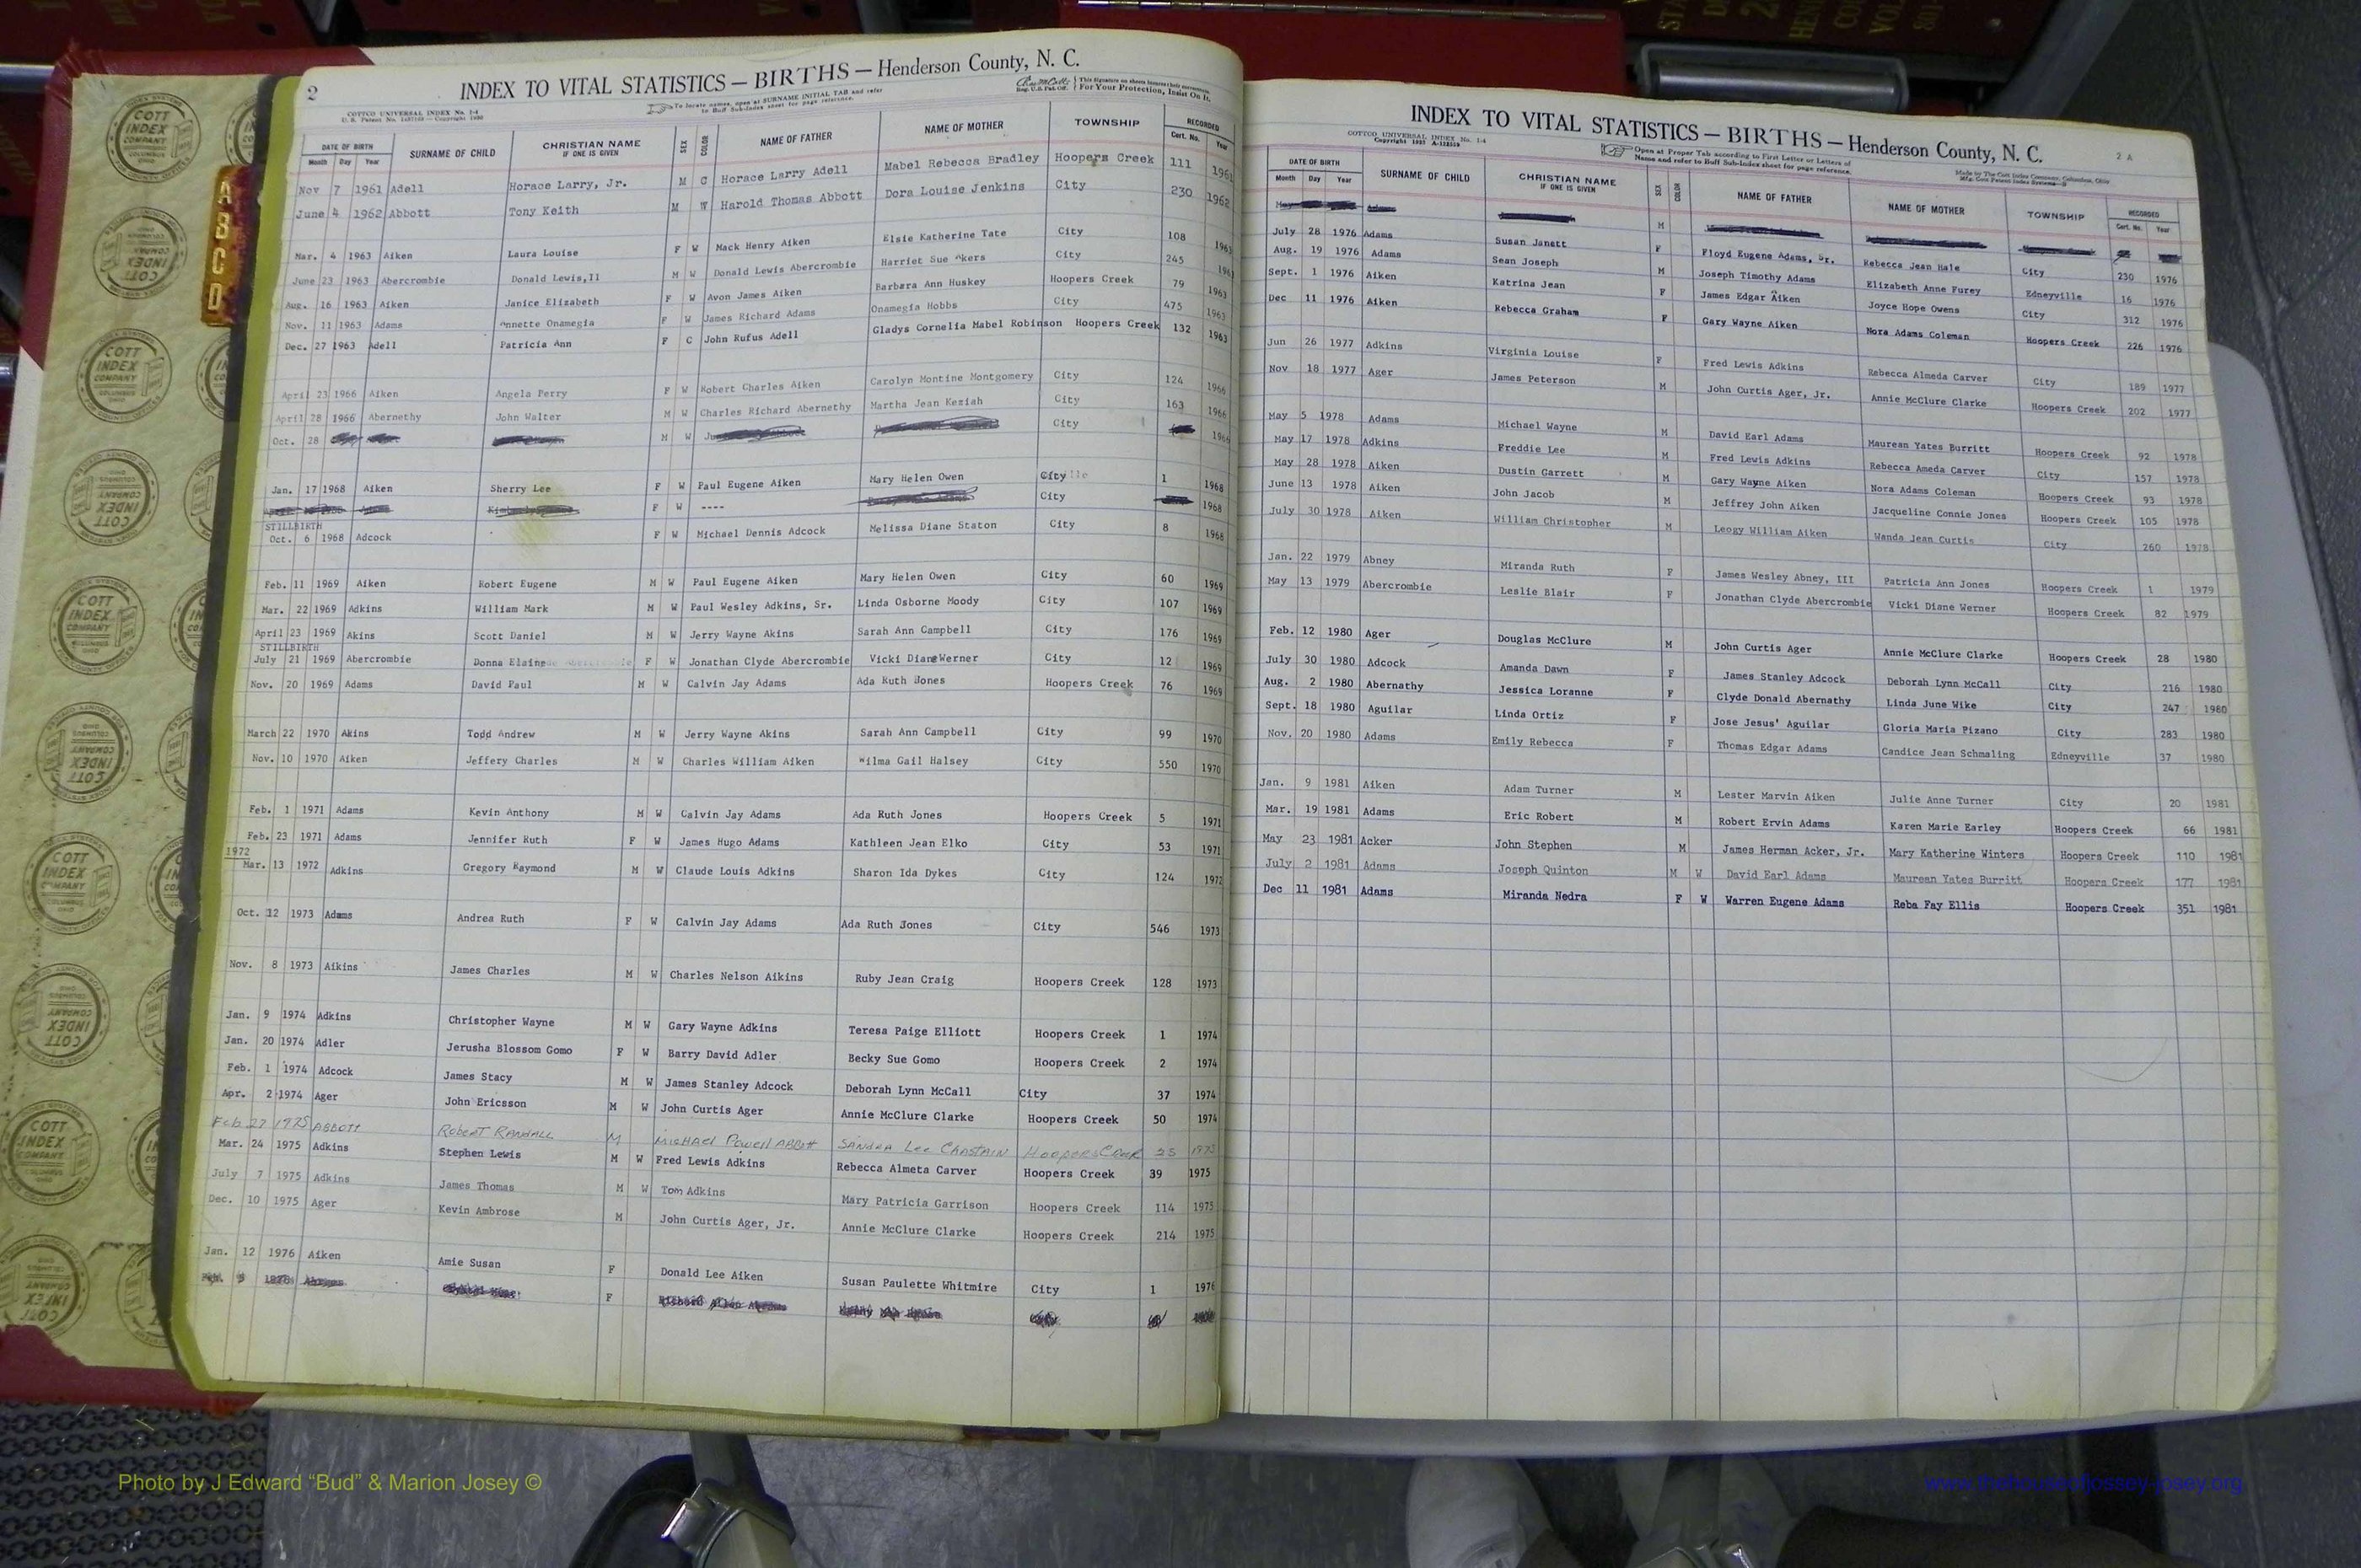 2
INDEX TO VITAL STATISTICS — BIRTHS — Henderson County, N. C.
COTTCO UNIVERSAL INDEX No. 1-4
To locate names, open at SURNAME INITIAL TAB and refer
to Buff Sub-Index sheet for page reference.
For Your Protection, Insist On It.
DATE OF BIRTH SURNAME OF CHILD CHRISTIAN NAME IF ONE IS GIVEN SEX COLOR NAME OF FATHER NAME OF MOTHER TOWNSHIP RECORDED
Month Day Year Cert. No. Year
Nov 7 1961 Adell Horace Larry, Jr. M C Horace Larry Adell Mabel Rebecca Bradley Hoopers Creek 111 1961
June 4 1962 Abbott Tony Keith M W Harold Thomas Abbott Dora Louise Jenkins City 230 1962
Mar. 4 1963 Aiken Laura Louise F W Mack Henry Aiken Elsie Katherine Tate City 108 1963
June 23 1963 Abercrombie Donald Lewis,II M W Donald Lewis Abercrombie Harriet Sue Akers City 245 1963
Aug. 16 1963 Aiken Janice Elizabeth F W Avon James Aiken Barbara Ann Huskey Hoopers Creek 79 1963
Nov. 11 1963 Adams Annette Onamegia F W James Richard Adams Onamegia Hobbs City 475 1963
Dec. 27 1963 Adell Patricia Ann F C John Rufus Adell Gladys Cornelia Mabel Robinson Hoopers Creek 132 1963
April 23 1966 Aiken Angela Perry F W Robert Charles Aiken Carolyn Montine Montgomery City 124 1966
April 28 1966 Abernethy John Walter M W Charles Richard Abernethy Martha Jean Keziah City 163 1966
Oct. 28 M W City 1966
Jan. 17 1968 Aiken Sherry Lee F W Paul Eugene Aiken Mary Helen Owen City 1 1968
F W ---- City 1968
STILLBIRTH
Oct. 6 1968 Adcock F W Michael Dennis Adcock Melissa Diane Staton City 8 1968
Feb. 11 1969 Aiken Robert Eugene M W Paul Eugene Aiken Mary Helen Owen City 60 1969
Mar. 22 1969 Adkins William Mark M W Paul Wesley Adkins, Sr. Linda Osborne Moody City 107 1969
April 23 1969 Akins Scott Daniel M W Jerry Wayne Akins Sarah Ann Campbell City 176 1969
STILLBIRTH
July 21 1969 Abercrombie Donna Elaine F W Jonathan Clyde Abercrombie Vicki Diane Werner City 12 1969
Nov. 20 1969 Adams David Paul M W Calvin Jay Adams Ada Ruth Jones Hoopers Creek 76 1969
March 22 1970 Akins Todd Andrew M W Jerry Wayne Akins Sarah Ann Campbell City 99 1970
Nov. 10 1970 Aiken Jeffery Charles M W Charles William Aiken Wilma Gail Halsey City 550 1970
Feb. 1 1971 Adams Kevin Anthony M W Calvin Jay Adams Ada Ruth Jones Hoopers Creek 5 1971
Feb. 23 1971 Adams Jennifer Ruth F W James Hugo Adams Kathleen Jean Elko City 53 1971
1972
Mar. 13 1972 Adkins Gregory Raymond M W Claude Louis Adkins Sharon Ida Dykes City 124 1972
Oct. 12 1973 Adams Andrea Ruth F W Calvin Jay Adams Ada Ruth Jones City 546 1973
Nov. 8 1973 Aikins James Charles M W Charles Nelson Aikins Ruby Jean Craig Hoopers Creek 128 1973
Jan. 9 1974 Adkins Christopher Wayne M W Gary Wayne Adkins Teresa Paige Elliott Hoopers Creek 1 1974
Jan. 20 1974 Adler Jerusha Blossom Gomo F W Barry David Adler Becky Sue Gomo Hoopers Creek 2 1974
Feb. 1 1974 Adcock James Stacy M W James Stanley Adcock Deborah Lynn McCall City 37 1974
Apr. 2 1974 Ager John Ericsson M W John Curtis Ager Annie McClure Clarke Hoopers Creek 50 1974
Feb 27 1975 Abbott Robert Randall M Michael Powell Abbott Sandra Lee Chastain Hoopers Creek 25 1975
Mar. 24 1975 Adkins Stephen Lewis M W Fred Lewis Adkins Rebecca Almeta Carver Hoopers Creek 39 1975
July 7 1975 Adkins James Thomas M W Tom Adkins Mary Patricia Garrison Hoopers Creek 114 1975
Dec. 10 1975 Ager Kevin Ambrose M John Curtis Ager, Jr. Annie McClure Clarke Hoopers Creek 214 1975
Jan. 12 1976 Aiken Amie Susan F Donald Lee Aiken Susan Paulette Whitmire City 1 1976
F
INDEX TO VITAL STATISTICS — BIRTHS — Henderson County, N. C.
2 A
COTTCO UNIVERSAL INDEX No. 1-4
Open at Proper Tab according to First Letter or Letters of
Name and refer to Buff Sub-Index sheet for page reference.
Made by The Cott Index Company, Columbus, Ohio
DATE OF BIRTH SURNAME OF CHILD CHRISTIAN NAME IF ONE IS GIVEN SEX COLOR NAME OF FATHER NAME OF MOTHER TOWNSHIP RECORDED
Month Day Year Cert. No. Year
M
July 28 1976 Adams Susan Janett F Floyd Eugene Adams, Sr. Rebecca Jean Hale City 230 1976
Aug. 19 1976 Adams Sean Joseph M Joseph Timothy Adams Elizabeth Anne Furey Edneyville 16 1976
Sept. 1 1976 Aiken Katrina Jean F James Edgar Aiken Joyce Hope Owens City 312 1976
Dec 11 1976 Aiken Rebecca Graham F Gary Wayne Aiken Nora Adams Coleman Hoopers Creek 226 1976
Jun 26 1977 Adkins Virginia Louise F Fred Lewis Adkins Rebecca Almeda Carver City 189 1977
Nov 18 1977 Ager James Peterson M John Curtis Ager, Jr. Annie McClure Clarke Hoopers Creek 202 1977
May 5 1978 Adams Michael Wayne M David Earl Adams Maurean Yates Burritt Hoopers Creek 92 1978
May 17 1978 Adkins Freddie Lee M Fred Lewis Adkins Rebecca Ameda Carver City 157 1978
May 28 1978 Aiken Dustin Garrett M Gary Wayne Aiken Nora Adams Coleman Hoopers Creek 93 1978
June 13 1978 Aiken John Jacob M Jeffrey John Aiken Jacqueline Connie Jones Hoopers Creek 105 1978
July 30 1978 Aiken William Christopher M Leogy William Aiken Wanda Jean Curtis City 260 1978
Jan. 22 1979 Abney Miranda Ruth F James Wesley Abney, III Patricia Ann Jones Hoopers Creek 1 1979
May 13 1979 Abercrombie Leslie Blair F Jonathan Clyde Abercrombie Vicki Diane Werner Hoopers Creek 82 1979
Feb. 12 1980 Ager Douglas McClure M John Curtis Ager Annie McClure Clarke Hoopers Creek 28 1980
July 30 1980 Adcock Amanda Dawn F James Stanley Adcock Deborah Lynn McCall City 216 1980
Aug. 2 1980 Abernathy Jessica Loranne F Clyde Donald Abernathy Linda June Wike City 247 1980
Sept. 18 1980 Aguilar Linda Ortiz F Jose Jesus' Aguilar Gloria Maria Pizano City 283 1980
Nov. 20 1980 Adams Emily Rebecca F Thomas Edgar Adams Candice Jean Schmaling Edneyville 37 1980
Jan. 9 1981 Aiken Adam Turner M Lester Marvin Aiken Julie Anne Turner City 20 1981
Mar. 19 1981 Adams Eric Robert M Robert Ervin Adams Karen Marie Earley Hoopers Creek 66 1981
May 23 1981 Acker John Stephen M James Herman Acker, Jr. Mary Katherine Winters Hoopers Creek 110 1981
July 2 1981 Adams Joseph Quinton M W David Earl Adams Maurean Yates Burritt Hoopers Creek 177 1981
Dec 11 1981 Adams Miranda Nedra F W Warren Eugene Adams Reba Fay Ellis Hoopers Creek 351 1981
A
B
C
D
COTT INDEX COMPANY
Photo by J Edward “Bud” & Marion Josey ©
www.thehouseofjossey-josey.org